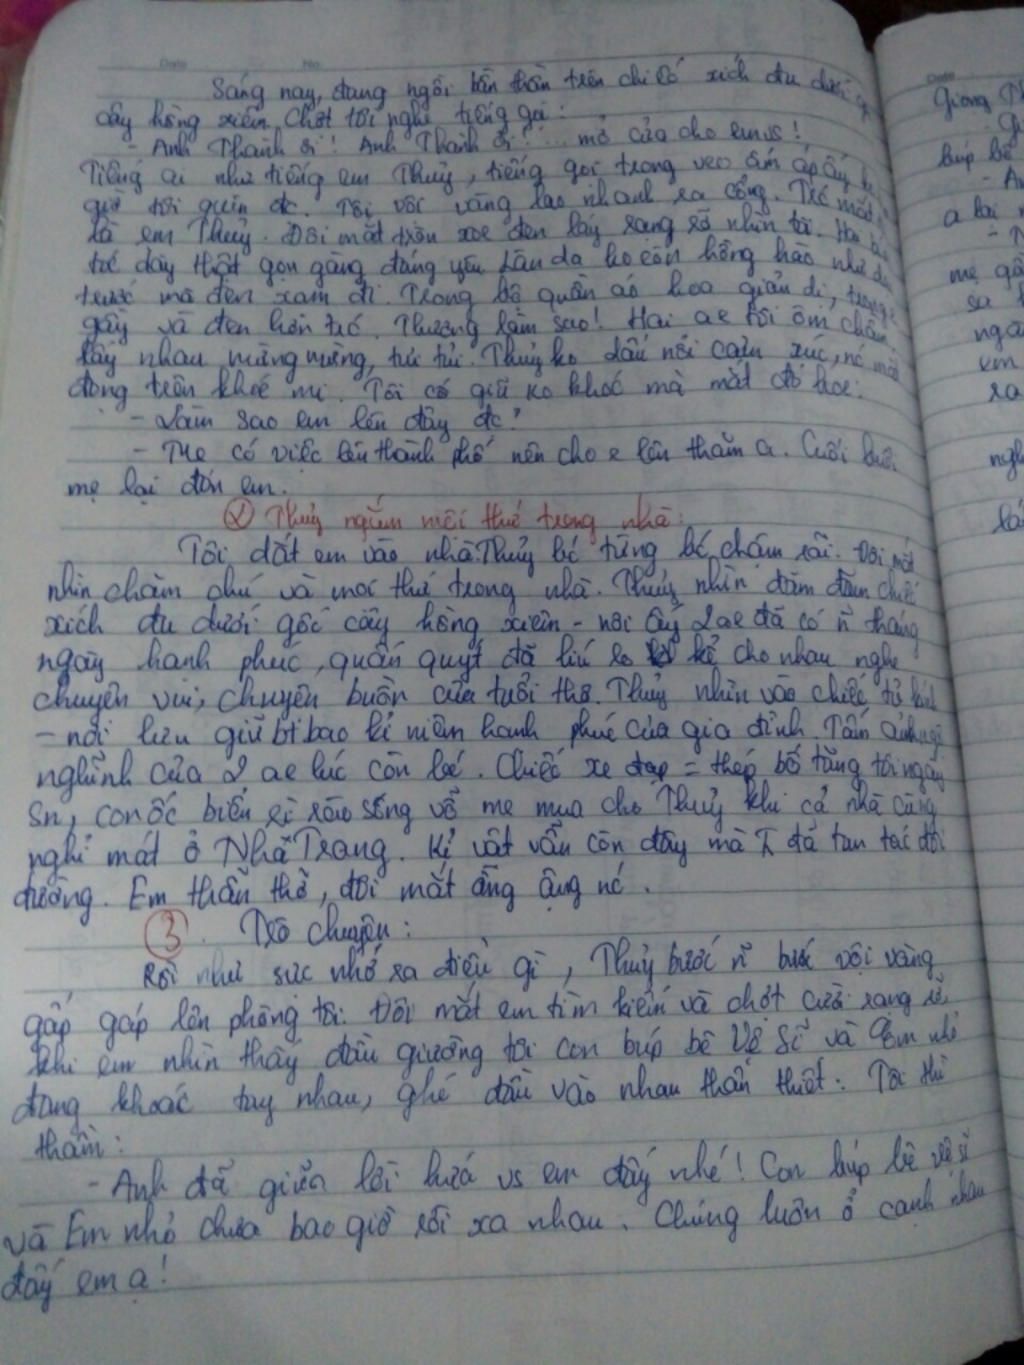 Date No
Sáng nay, đang ngồi bần thần trên chiếc xích đu dưới gốc
cây hồng xiêm. Chợt tôi nghe tiếng gọi:
- Anh Thành ơi! Anh Thành ơi!... mở cửa cho em vs!
Tiếng ai như tiếng em Thuỷ, tiếng gọi trong veo ấm áp ấy
giờ tôi quên đc. Tôi vội vàng lao nhanh ra cổng. Trc mắt
là em Thuỷ. Đôi mắt tròn xoe đen láy rạng rỡ nhìn tôi. Hai
tóc dày thật gọn gàng đáng yêu. Làn da ko còn hồng hào như
trước mà đen xạm đi. Trong bộ quần áo hoa giản dị, trông
gầy và đen hơn trc. Thương làm sao! Hai ae tôi ôm chầm
lấy nhau mừng mừng, tủi tủi. Thuỷ ko dấu nổi cảm xúc, nc mắt
đọng trên khoé mi. Tôi cố giữ ko khóc mà mắt đỏ hoe:
- Làm sao em lên đây đc?
- Mẹ có việc lên thành phố nên cho e lên thăm a. Cuối buổi
mẹ lại đón em.
② Thuỷ ngắm mọi thứ trong nhà:
Tôi dắt em vào nhà. Thuỷ bc từng bc chậm rãi. Đôi mắt
nhìn chăm chú và mọi thứ trong nhà. Thuỷ nhìn đăm đăm chiếc
xích đu dưới gốc cây hồng xiêm - nơi ấy 2 ae đã có n̄ tháng
ngày hạnh phúc, quấn quýt đã líu lo kể cho nhau nghe
chuyện vui, chuyện buồn của tuổi thơ. Thuỷ nhìn vào chiếc tủ kính
- nơi lưu giữ bt bao kỉ niệm hạnh phúc của gia đình. Tấm ảnh ngộ
nghĩnh của 2 ae lúc còn bé. Chiếc xe đạp = thép bố tặng tôi ngày
sn, con ốc biển rì rào sóng vỗ mẹ mua cho Thuỷ khi cả nhà cùng
nghỉ mát ở Nha Trang. Kỉ vật vẫn còn đây mà đã tan tác đôi
đường. Em thẫn thờ, đôi mắt ầng ậng nc.
③. Trò chuyện:
Rồi như sực nhớ ra điều gì, Thuỷ bước n̄ bước vội vàng
gấp gáp lên phòng tôi. Đôi mắt em tìm kiếm và chợt cười rạng rỡ
khi em nhìn thấy đầu giường tôi con búp bê Vệ Sĩ và Em nhỏ
đang khoác tay nhau, ghé đầu vào nhau thân thiết. Tôi thì
thầm:
- Anh đã giữ lời hứa vs em đấy nhé! Con búp bê vệ sĩ
và Em nhỏ chưa bao giờ rời xa nhau. Chúng luôn ở cạnh nhau
đấy em ạ!
Date
Giọng Th
búp bê
- An
a lại
mẹ
sa
em
ra